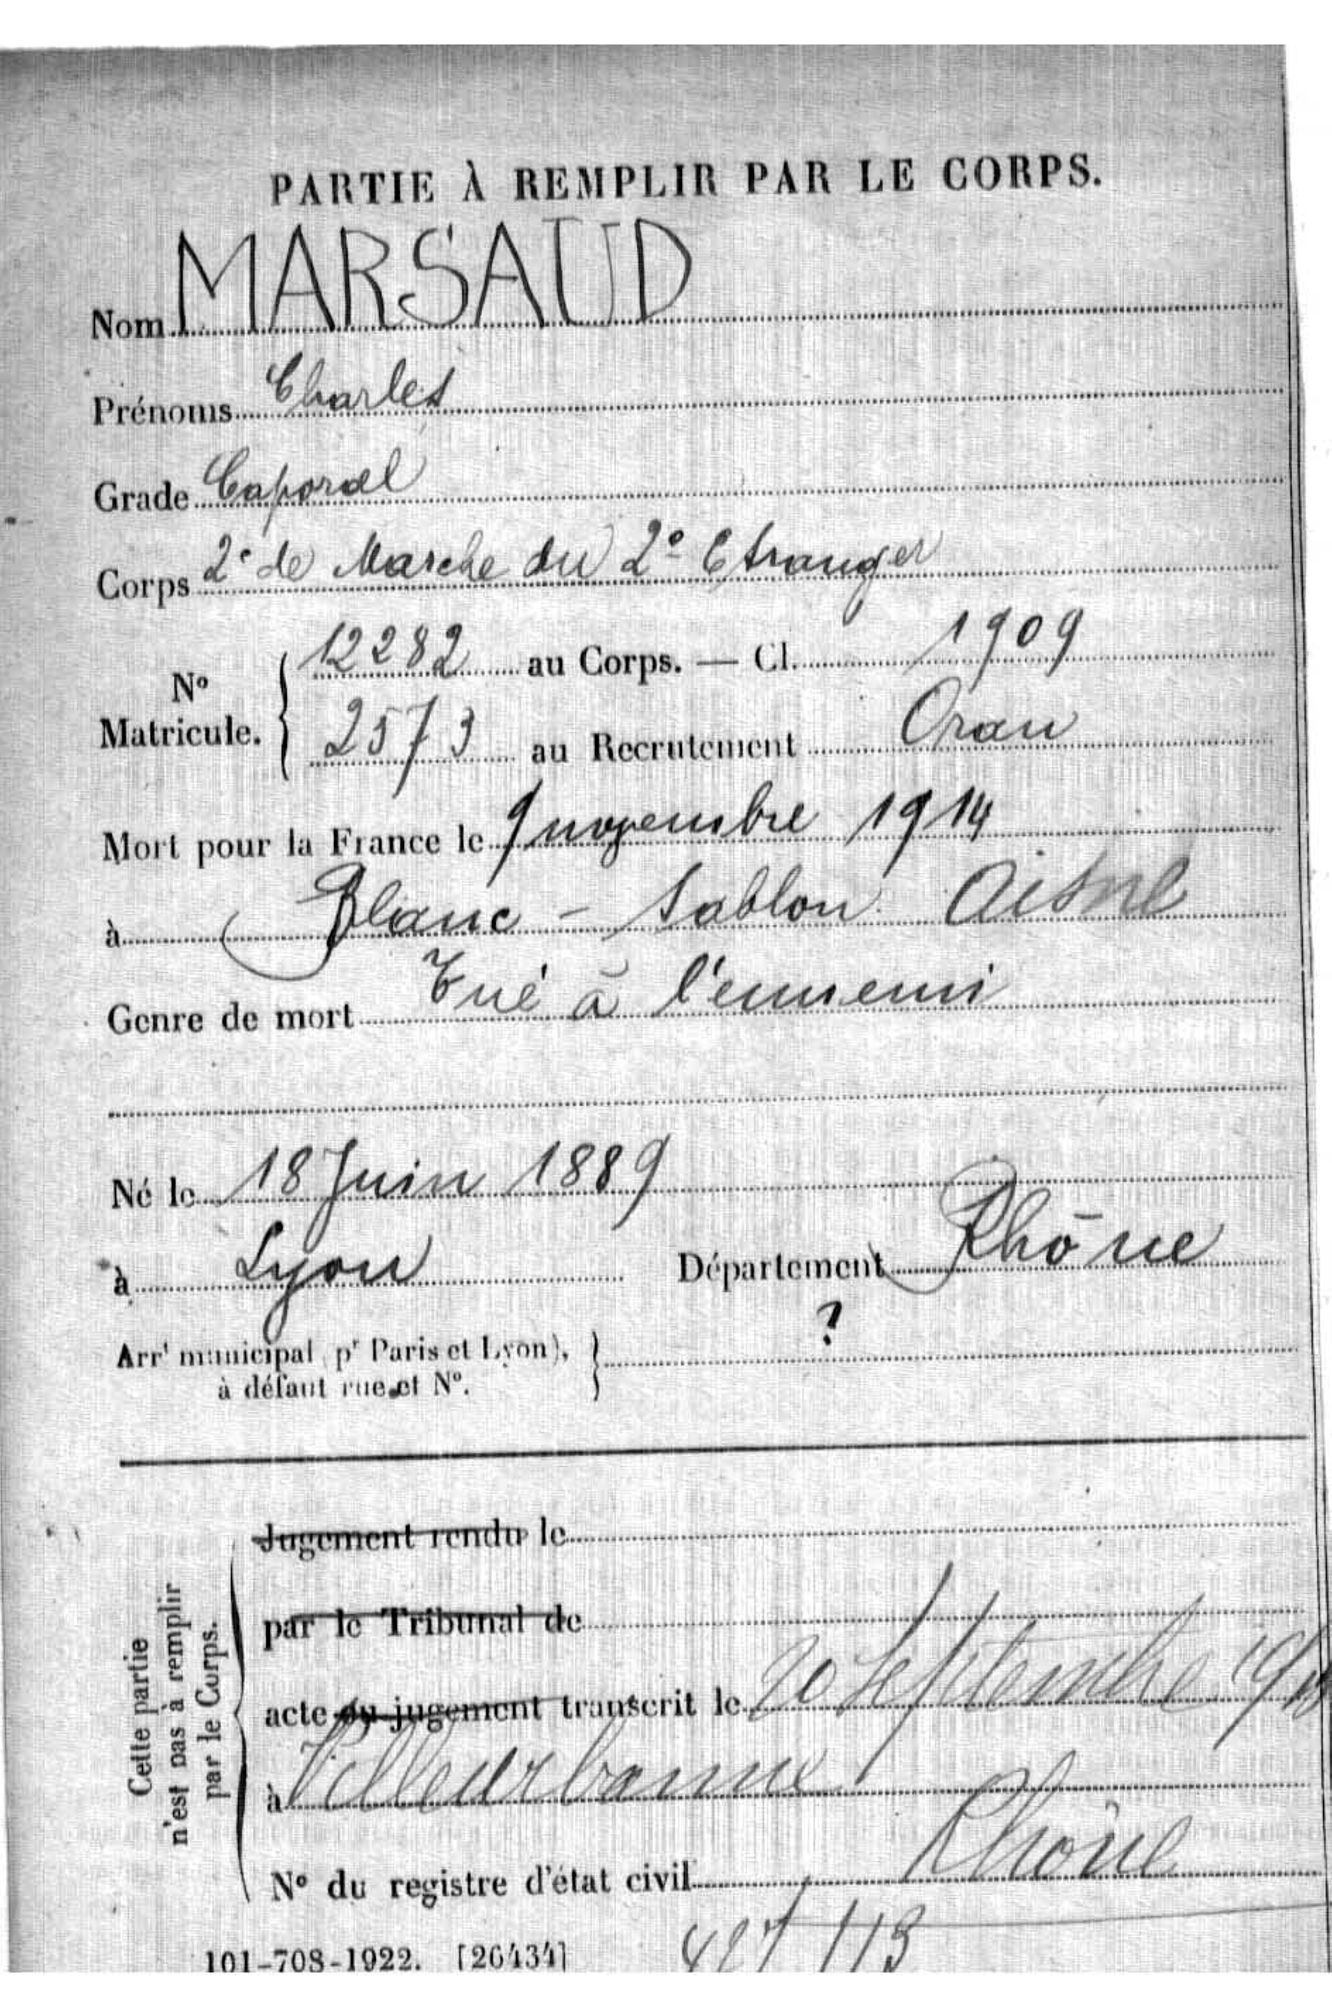 PARTIE À REMPLIR PAR LE CORPS.
Nom MARSAUD
Prénoms Charles
Grade Caporal
Corps 2e de Marche du 2e Etranger
No Matricule. 12282 au Corps. — Cl. 1909
2573 au Recrutement Oran
Mort pour la France le 9 novembre 1914
à Blanc - Sablon Aisne
Genre de mort Tué à l'ennemi
Né le 18 Juin 1889
à Lyon Département Rhône
Arrt municipal (pr Paris et Lyon), ?
à défaut rue et No.
Cette partie
n'est pas à remplir
par le Corps.
Jugement rendu le
par le Tribunal de
acte ou jugement transcrit le 20 Septembre
à Villeurbanne
Rhône
No du registre d'état civil
101-708-1922. [26434] 427/113